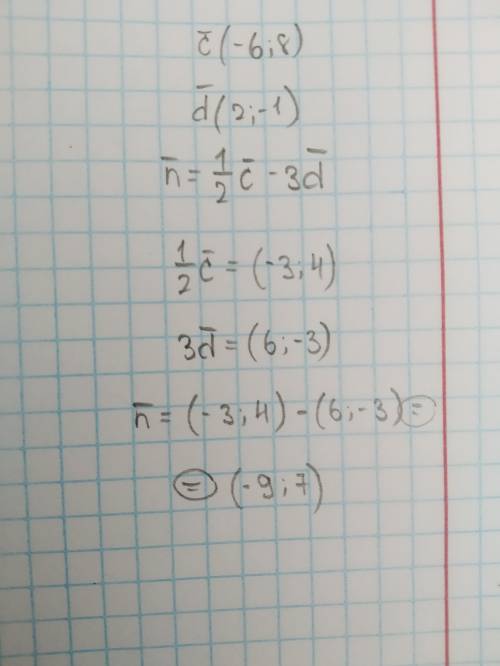 c̄(-6;8)
d̄(2;-1)
n̄ = 1/2 c̄ - 3d̄
1/2 c̄ = (-3;4)
3d̄ = (6;-3)
n̄ = (-3;4) - (6;-3) =
= (-9;7)